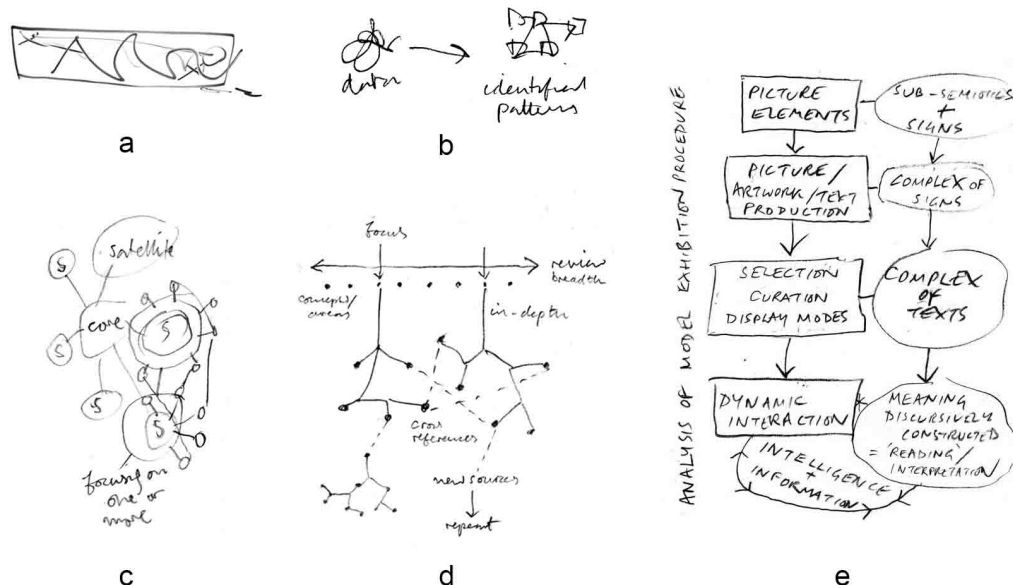 a
data
identified
patterns
b
satellite
S
core
S
S
S
S
focusing on
one or
more
c
focus
review
breadth
concepts/
areas
in-depth
cross
references
new sources
repeat
d
ANALYSIS OF MODEL EXHIBITION PROCEDURE
PICTURE
ELEMENTS
SUB-SEMIOTICS
+
SIGNS
PICTURE/
ARTWORK/TEXT
PRODUCTION
COMPLEX OF
SIGNS
SELECTION
CURATION
DISPLAY MODES
COMPLEX
OF
TEXTS
DYNAMIC
INTERACTION
MEANING
DISCURSIVELY
CONSTRUCTED
= 'READING'/
INTERPRETATION
INTELLIGENCE
+
INFORMATION
e